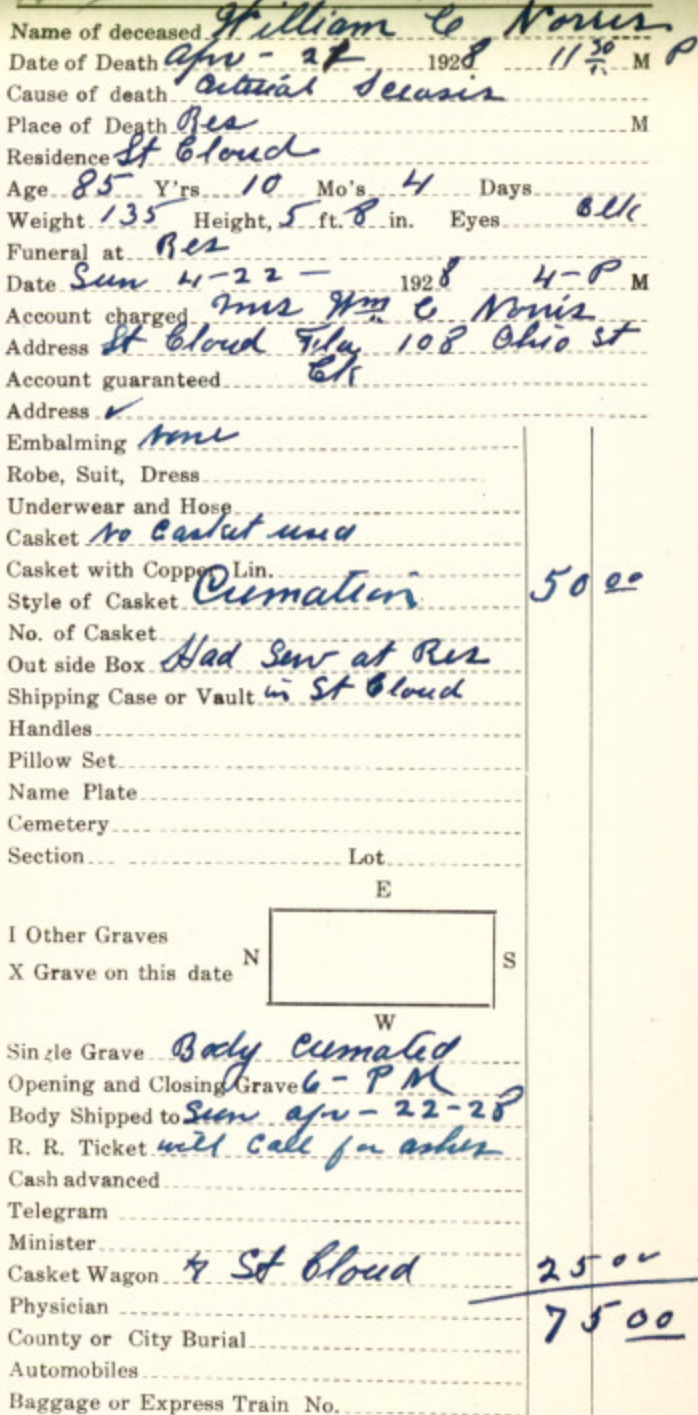 Name of deceased William C Norris
Date of Death Apr - 1928 11 30 M P
Cause of death Arterial Sclrosis
Place of Death Res M
Residence St Cloud
Age 85 Y'rs 10 Mo's 4 Days
Weight 135 Height, 5 ft. 8 in. Eyes Blk
Funeral at Res
Date Sun 4-22- 1928 4-P M
Account charged Mrs Wm C Norris
Address St Cloud Fla 108 Ohio St
Account guaranteed
Address ✓
Embalming None
Robe, Suit, Dress
Underwear and Hose
Casket No Casket used
Casket with Copper Lin.
Style of Casket Cremation 50 00
No. of Casket
Out side Box Had Serv at Res
Shipping Case or Vault in St Cloud
Handles
Pillow Set
Name Plate
Cemetery
Section Lot
E
I Other Graves
X Grave on this date N S
W
Single Grave Body Cremated
Opening and Closing Grave 6 - P M
Body Shipped to Sun Apr - 22-28
R. R. Ticket will Call for ashes
Cash advanced
Telegram
Minister
Casket Wagon St Cloud 25 00
Physician 75 00
County or City Burial
Automobiles
Baggage or Express Train No.